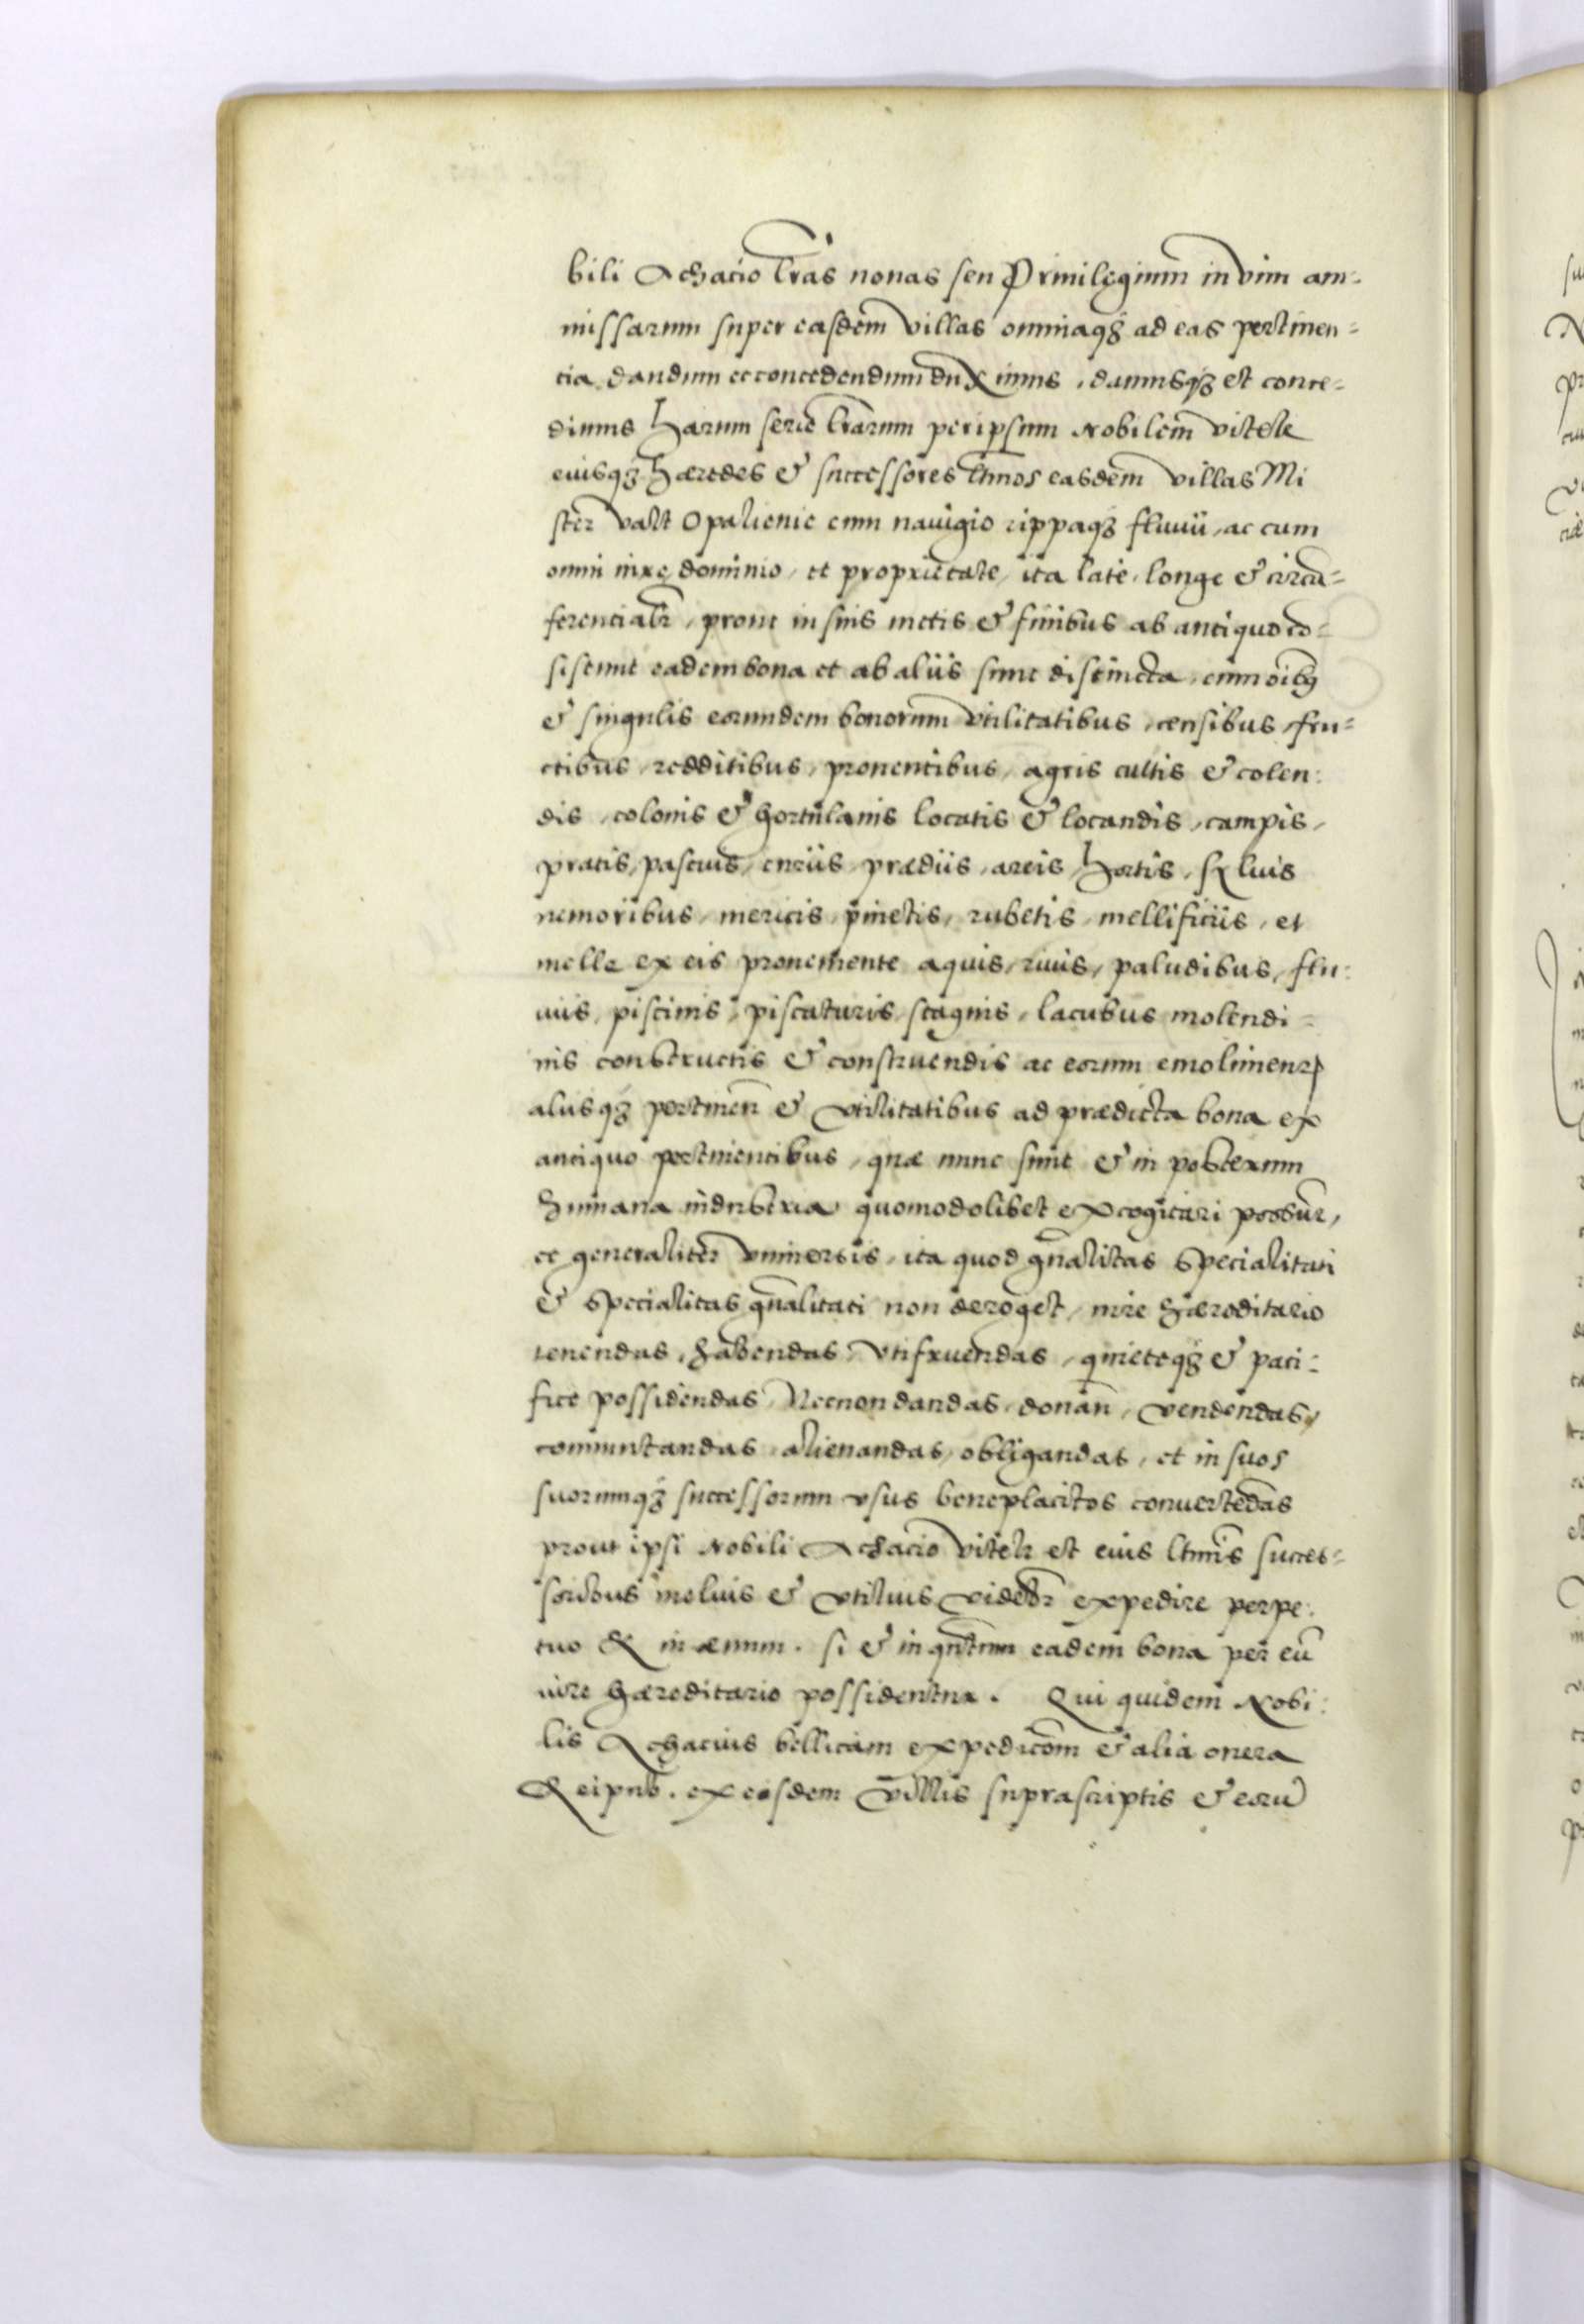 bili Achacio lr̃as nouas seu Priuilegium in vim am-
missarum super easdem villas omniaq₃ ad eas pertinen-
tia dandum et concedendum duximus, damusq₃ et conce-
dimus harum serie lr̃arum per ipsum Nobilem
eiusq₃ hæredes & successores ltimos easdem villas Mi
ster valt Opalienie cum nauigio rippaq₃ fluuii, ac cum
omni iure dominio, et proprietate, ita late, longe & circũ-
ferentialr̃, prout in suis metis & finibus ab antiquo cõ-
sistunt eadem bona et ab aliis sunt distincta, cum oĩbꝯ
& singulis eorundem bonorum vtilitatibus, censibus, fru-
ctibus, redditibus, prouentibus, agris cultis & colen-
dis, colonis & hortulanis locatis & locandis, campis,
pratis, pascuis, curiis, prædiis, areis, hortis, syluis
nemoribus, mericis, pinetis, rubetis, mellificiis, et
melle ex eis proueniente aquis, riuis, paludibus, flu-
uiis, piscinis, piscaturis, stagnis, lacubus molendi-
nis constructis & construendis ac eorum emolimenꝝ
aliisq₃ pertineñ & vtilitatibus ad prædicta bona ex
antiquo pertinentibus, quæ nunc sunt & in posterum
humana industria quomodolibet excogitari possunt,
et generaliter vniuersis, ita quod gñalitas specialitati
& specialitas gñalitati non deroget, iure hæreditario
tenendas, habendas, vtifruendas, quieteq₃ & paci-
fice possidendas, Necnon dandas, donañ, vendendas,
commutandas, alienandas, obligandas, et in suos
suorumq₃ successorum vsus beneplacitos conuertẽdas
prout ipsi Nobili Achacio et eius ltimis succes-
soribus melius & vtilius videbr̃ expedire perpe-
tuo & in æuum. si & in qñtum eadem bona per eũ
iure hæreditario possidentur. Qui quidem Nobi-
lis Achacius bellicam expedicõm & alia onera
Reipub. ex eisdem villis suprascriptis & eorũ